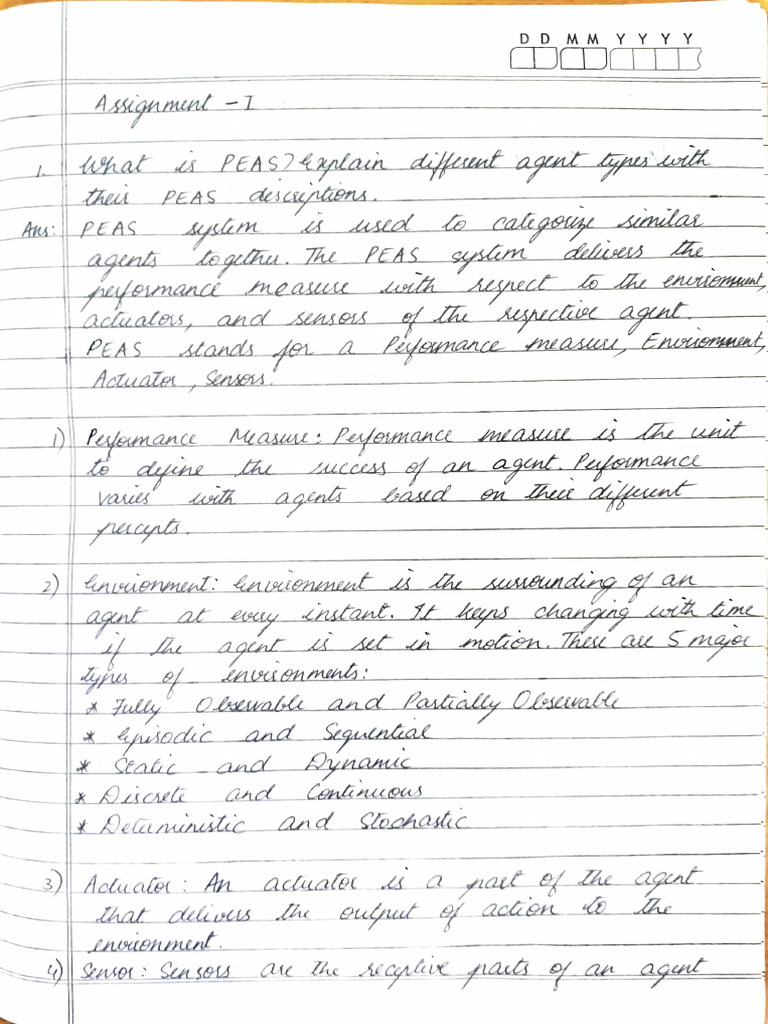 D D M M Y Y Y Y
Assignment - I
1. What is PEAS? Explain different agent types with
their PEAS descriptions.
Ans: PEAS system is used to categorize similar
agents together. The PEAS system delivers the
performance measure with respect to the environment,
actuators, and sensors of the respective agent.
PEAS stands for a Performance measure, Environment,
Actuator, Sensors.
1) Performance Measure: Performance measure is the unit
to define the success of an agent. Performance
varies with agents based on their different
percepts.
2) Environment: Environment is the surrounding of an
agent at every instant. It keeps changing with time
if the agent is set in motion. There are 5 major
types of environments:
* Fully Observable and Partially Observable
* Episodic and Sequential
* Static and Dynamic
* Discrete and Continuous
* Deterministic and Stochastic
3) Actuator: An actuator is a part of the agent
that delivers the output of action to the
environment.
4) Sensor: Sensors are the receptive parts of an agent